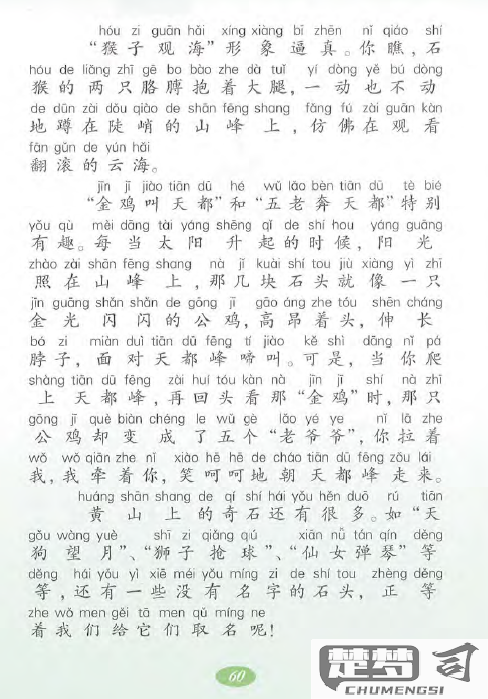 hóu zi guān hǎi xíng xiàng bī zhēn nǐ qiáo shí
“猴子观海”形象逼真。你瞧，石
hóu de liǎng zhī gē bo bào zhe dà tuǐ yí dòng yě bú dòng
猴的两只胳膊抱着大腿，一动也不动
de dūn zài dǒu qiào de shān fēng shang fǎng fú zài guān kàn
地蹲在陡峭的山峰上，仿佛在观看
fān gǔn de yún hǎi
翻滚的云海。
jīn jī jiào tiān dū hé wǔ lǎo bèn tiān dū tè bié
“金鸡叫天都”和“五老奔天都”特别
yǒu qù měi dāng tài yáng shēng qǐ de shí hou yáng guāng
有趣。每当太阳升起的时候，阳光
zhào zài shān fēng shang nà jǐ kuài shí tou jiù xiàng yì zhī
照在山峰上，那几块石头就像一只
jīn guāng shǎn shǎn de gōng jī gāo áng zhe tóu shēn cháng
金光闪闪的公鸡，高昂着头，伸长
bó zi miàn duì tiān dū fēng tí jiào kě shì dāng nǐ pá
脖子，面对天都峰啼叫。可是，当你爬
shàng tiān dū fēng zài huí tóu kàn nà jīn jī shí nà zhī
上天都峰，再回头看那“金鸡”时，那只
gōng jī què biàn chéng le wǔ gè lǎo yé ye nǐ lā zhe
公鸡却变成了五个“老爷爷”，你拉着
wǒ wǒ qiān zhe nǐ xiào hē hē de cháo tiān dū fēng zǒu lái
我，我牵着你，笑呵呵地朝天都峰走来。
huáng shān shang de qí shí hái yǒu hěn duō rú tiān
黄山上的奇石还有很多。如“天
gǒu wàng yuè shī zi qiǎng qiú xiān nǚ tán qín děng
狗望月”、“狮子抢球”、“仙女弹琴”等
děng hái yǒu yì xiē méi yǒu míng zi de shí tou zhèng děng
等，还有一些没有名字的石头，正等
zhe wǒ men gěi tā men qǔ míng ne
着我们给它们取名呢！
60
楚梦司
CHUMENGSI